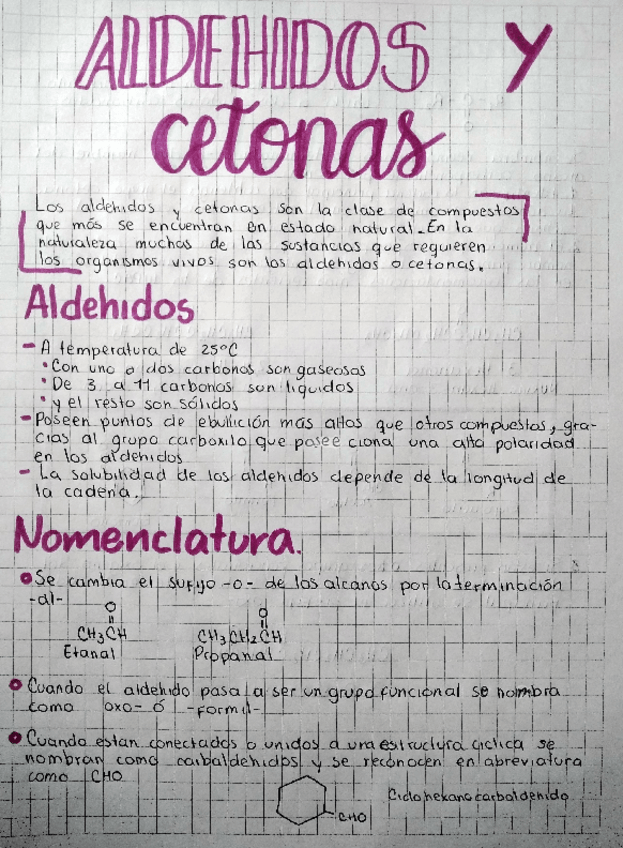 ALDEHIDOS Y
cetonas
Los aldehidos y cetonas son la clase de compuestos
que más se encuentran en estado natural. En la
naturaleza muchas de las sustancias que requieren
los organismos vivos son los aldehidos o cetonas.
Aldehidos
- A temperatura de 25°C
• Con uno o dos carbonos son gaseosas
• De 3 a 11 carbonos son liquidos
• y el resto son sólidos
- Poseen puntos de ebullición más altos que otros compuestos, gra-
cias al grupo carboxilo que posee ciona una alta polaridad
en los aldehidos
- La solubilidad de los aldehidos depende de la longitud de
la cadena.
Nomenclatura.
• Se cambia el sufijo -o- de los alcanos por la terminación
-al-
O O
CH3CH CH3CH2CH
Etanal Propanal
• Cuando el aldehido pasa a ser un grupo funcional se nombra
como oxo- ó -formil-
• Cuando estan conectados o unidos a una estructura ciclica se
nombran como carbaldehidos y se reconocen en abreviatura
como CHO
Ciclohexanocarbaldehido
-CHO